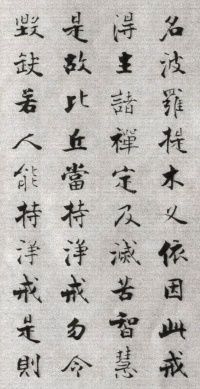 名波羅提木义依因此戒
得生諸禪定及滅苦智慧
是故比丘當持淨戒勿令
毀缺若人能持淨戒是則